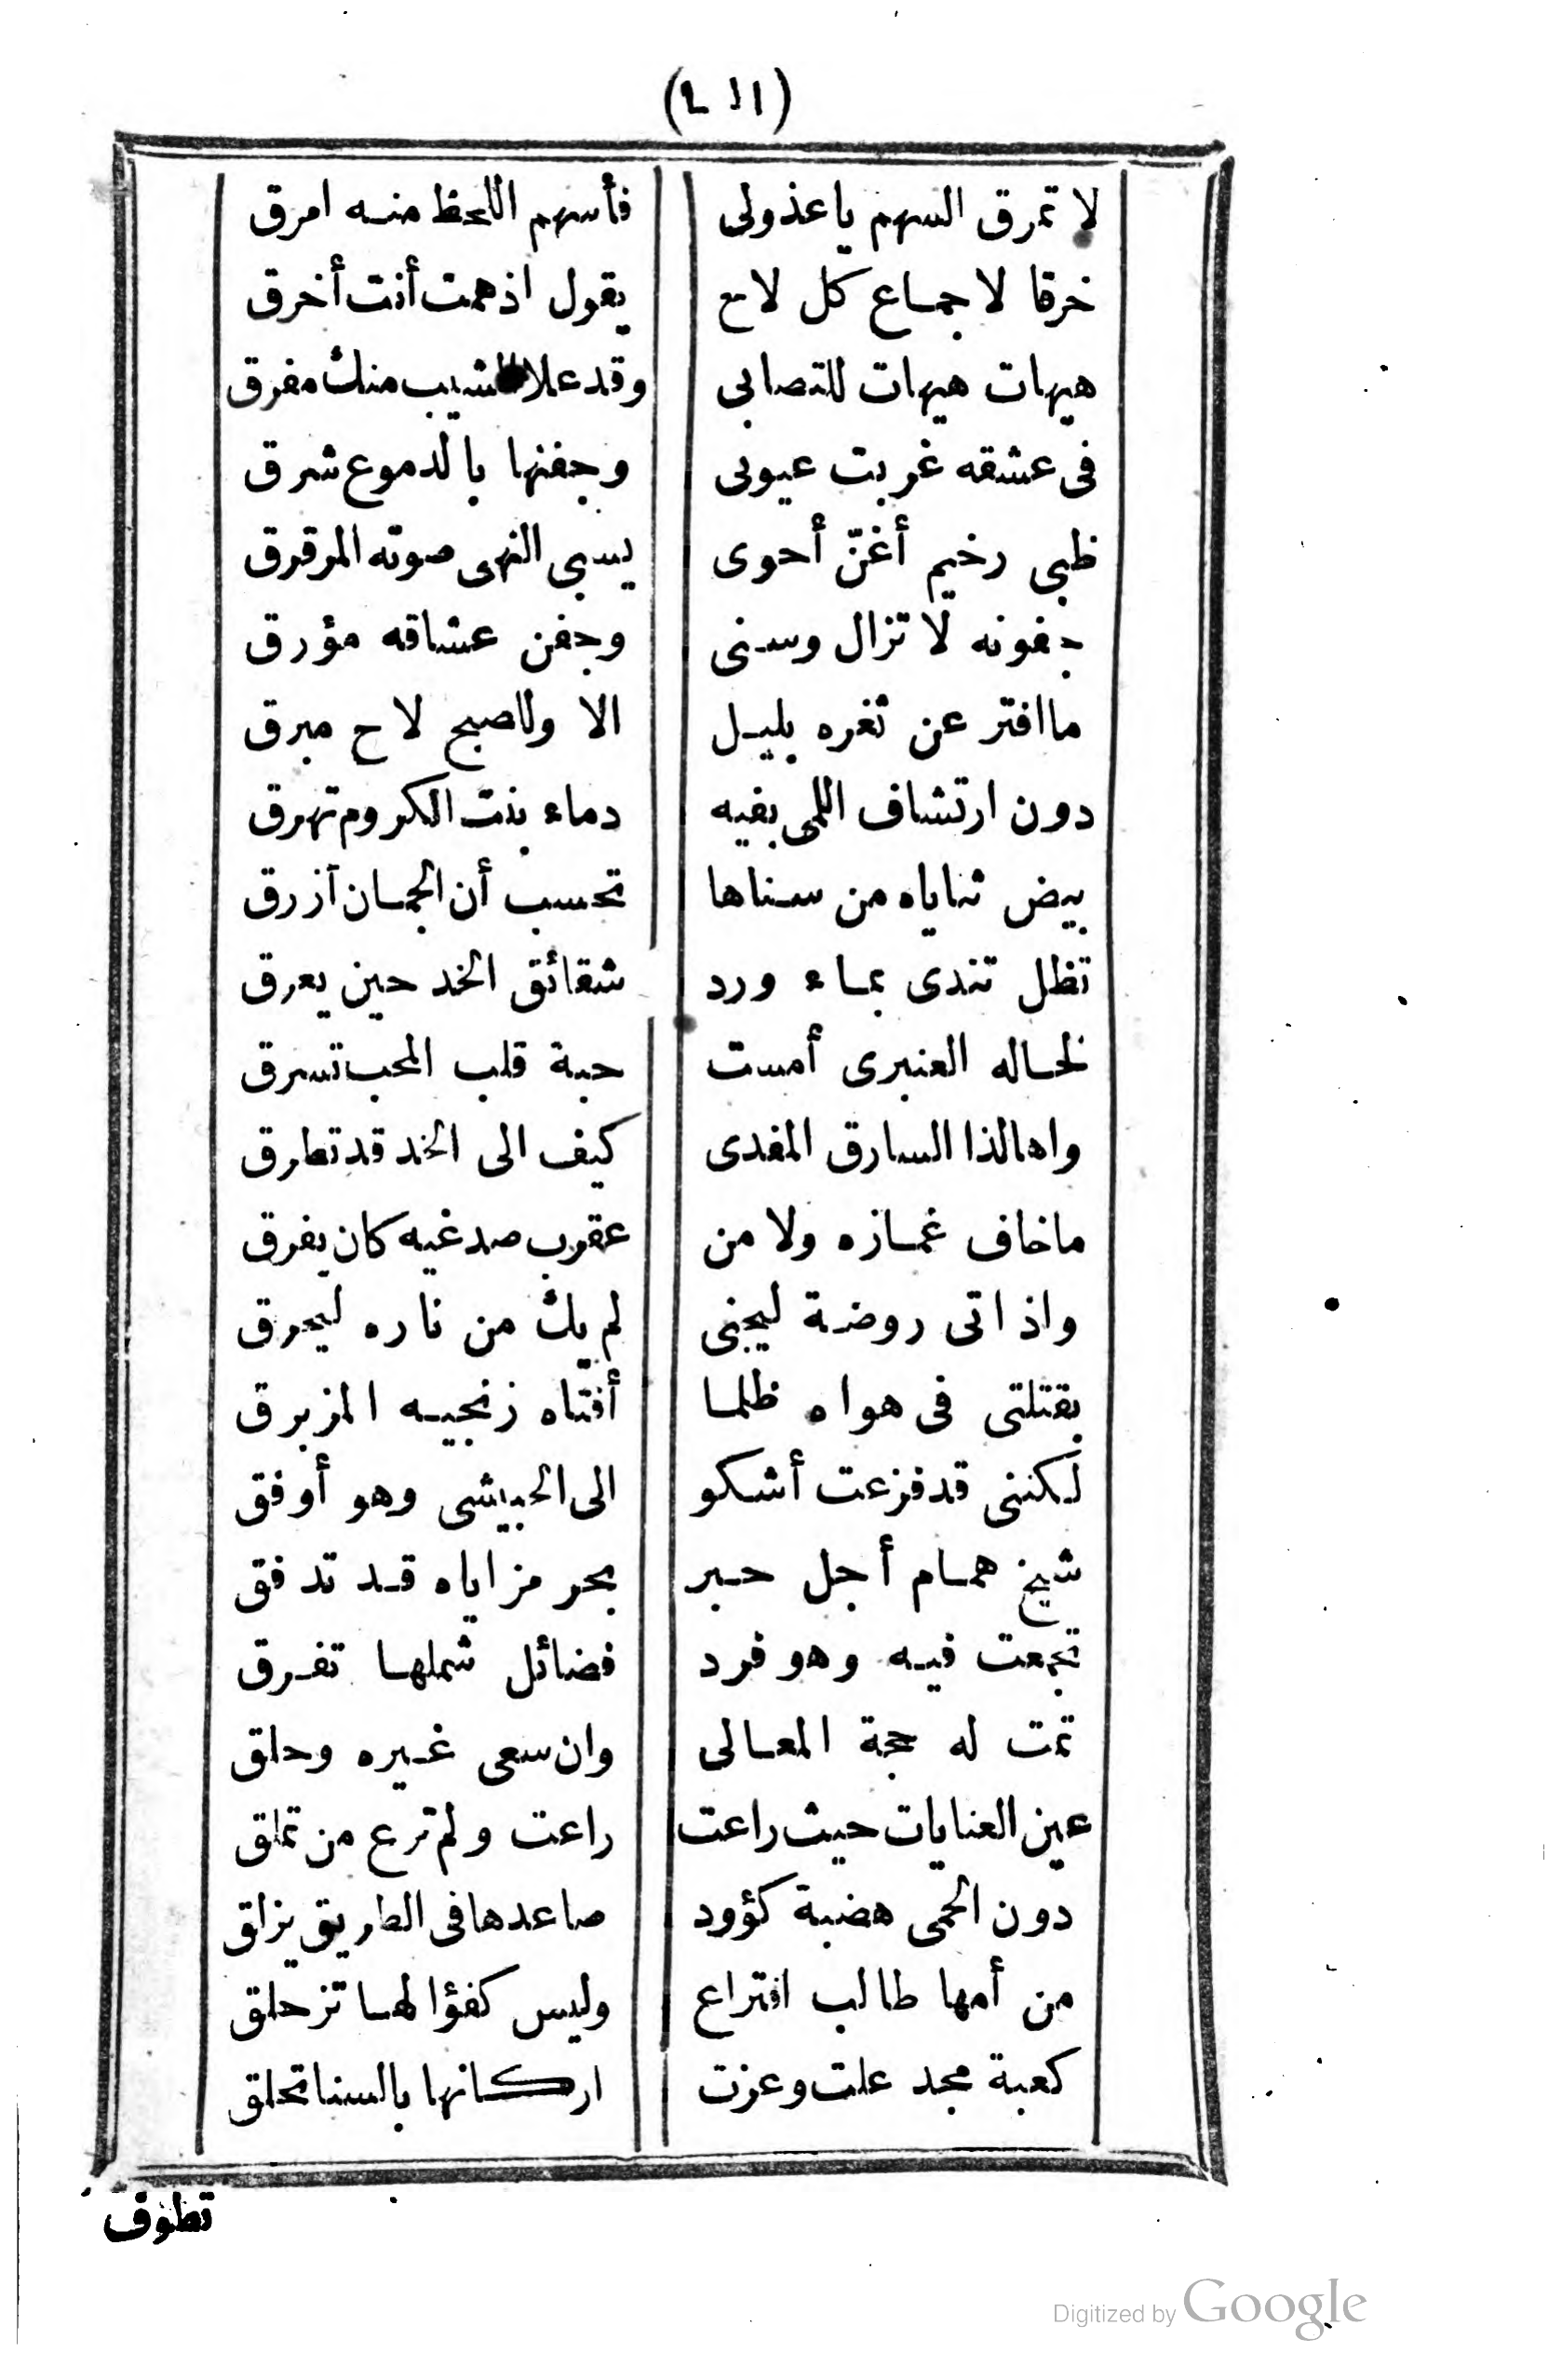 لا تمرق السهم يا عذولى فأسهم اللحظ منه امرق
خرقا لاجماع كل لاح يقول اذ همت أنت أخرق
هيهات هيهات للتصابى وقد علا للشيب منك مفرق
فى عشقه غربت عيونى وجفنها بالدموع شرق
ظبى رخيم أغنّ أحوى يسبى النهى صوته المرقرق
جفونه لا تزال وسنى وجفن عشاقه مؤرق
ما افتر عن ثغره بليل الا وللصبح لاح مبرق
دون ارتشاف اللمى بفيه دماء بنت الكروم تهرق
بيض ثناياه من سناها تحسب أن الجمان أزرق
تظل تندى بماء ورد شقائق الخد حين يعرق
لخاله العنبرى أمست حبة قلب المحب تسرق
واها لذا السارق المفدى كيف الى الخد قد تطرق
ما خاف غمازه ولا من عقرب صدغيه كان يفرق
واذ اتى روضة ليجنى لم يك من ناره ليحرق
بقتلتى فى هواه ظلما أفتاه زنجيه المزبرق
لكننى قد فزعت أشكو الى الحبيشى وهو أوفق
شيخ همام أجل حبر بحر مزاياه قد تدفق
تجمعت فيه وهو فرد فضائل شملها تفرق
تمت له حجة المعالى وان سعى غيره وحلق
عين العنايات حيث راعت راعت ولم ترع من تملق
دون الحمى هضبة كؤود صاعدها فى الطريق يزلق
من أمها طالب افتراع وليس كفؤا لها تزحلق
كعبة مجد علت وعزت اركانها بالسنا تحلق
تطوف
Digitized by Google